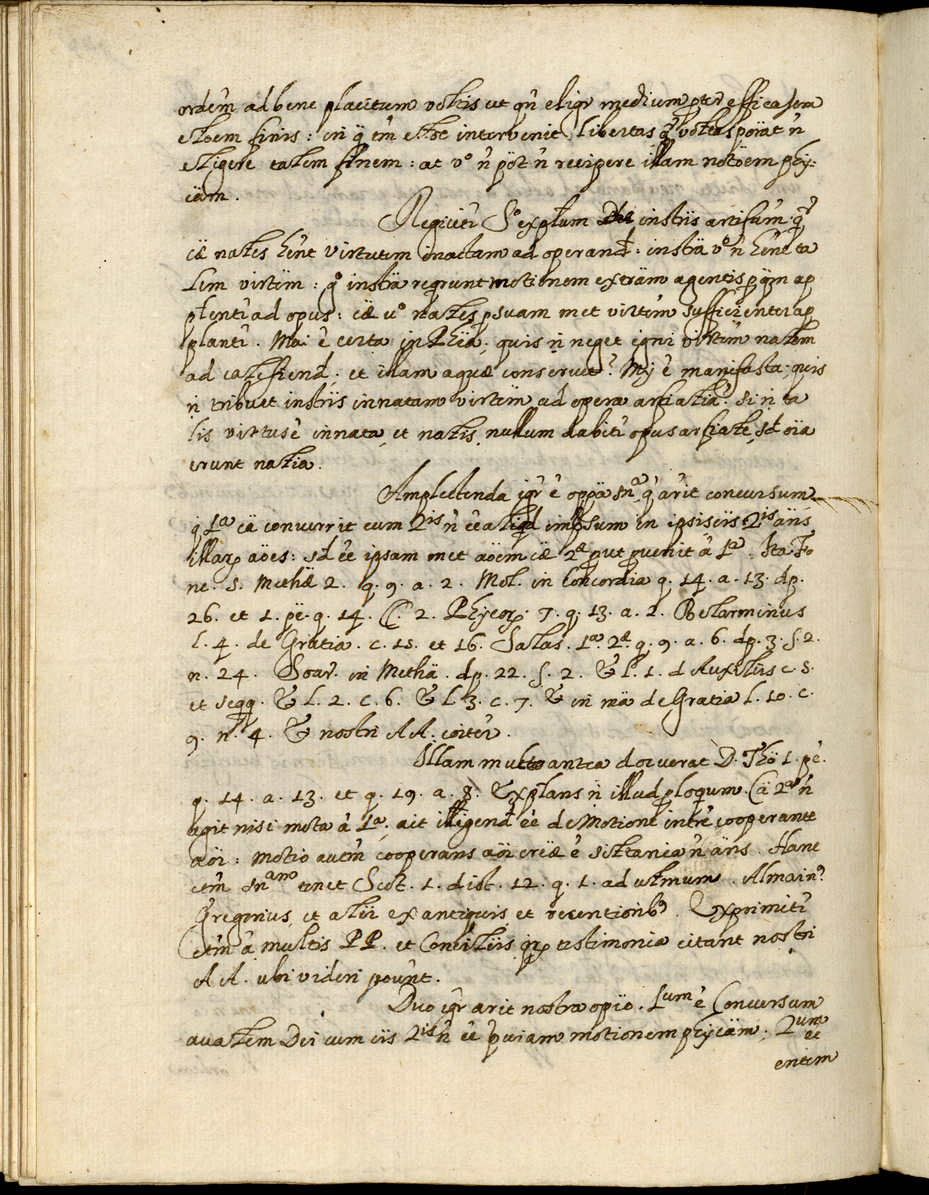 ordem̃ ad bene placitum voltis ut qñ eligr medium pter efficasem
ctoem finis: in q tm̃ intervenit libertas q voltas poiat ñ
eligere talem finem: at vº ñ pöt ñ recipere illam motöem phy:
cam.
Regicitr Sº explum instris artifum q
cæ nates hẽnt virtutem innatam ad operand: instä vº ñ hẽne ta
lem virtẽm: q instä reqrunt motionem exträm agentis ap
plenti ad opus: cæ vº nates p suam met virtem sufficienter ap
planti. Mai ẽ certa in Phïä: quis ñ neget igni virtum natem
ad calefiend: et illam aquæ conservet? Mi ẽ manifesta: quis
ñ tribuet instriis innatam virtem ad opera artialia: Si ñ ta
lis virtus ẽ innata et natis, nullum dabitr opus artiale, sd oïa
erunt natia.
Amplectenda igr ẽ oppä snª q arit concursum
q 1ª cä concurrit cum 2is ñ ẽe aliqd impsum in ipsis iis 2is äns
illarp aöes: sd ẽe ipsam met aöem cæ 2æ put puenit â 1ª. Ita Fo
ne. 5. Methæ 2. q. 9. a. 2. Mol. in Concordia q. 14. a. 13. dp.
26. et 1. pë. q. 14. C. 2. Phycorp. 7. q. 13. a. 1. Belarminus
l. 4. de Gratia. c. 15. et 16. Salas. 1ª. 2æ. q. 9. a. 6. dp. 3. s. 2.
n. 24. Soar. in Methä. dp. 22. s. 2. & l. 1. d Auxiliis c. 5.
et seqq. & l. 2. c. 6. & l. 3. c. 7. & in mä de Gratia l. 10. c.
9. n. 4. & nostri AA. coiter.
Illam multo antea docuerat D. Thö 1. pë.
q. 14. a. 13. et q. 19. a. 8. Explans ñ illud ploqum. Cä 2ª ñ
agit nisi mota â 1ª, ait illigend ẽe de Motione intre cooperante
aöi: motio autm cooperans aöi creæ ẽ siltanea ñ äns. Hanc
etm̃ snªm tenet Scot. 1. dist. 12. q. 1. ad ulmum. Almain9.
Gregorius et alii ex antiquis et recentiorib9. Exprimitr
etm̃ â multis PP. et Conciliis qrp testimonia citant nostri
AA. ubi videri pount.
Duo igr arit nostra opïo. 1um ẽ Concursum
aualem Dei cum iis 2is ñ ẽe pviam motionem phycäm; 2um
ẽe
entem